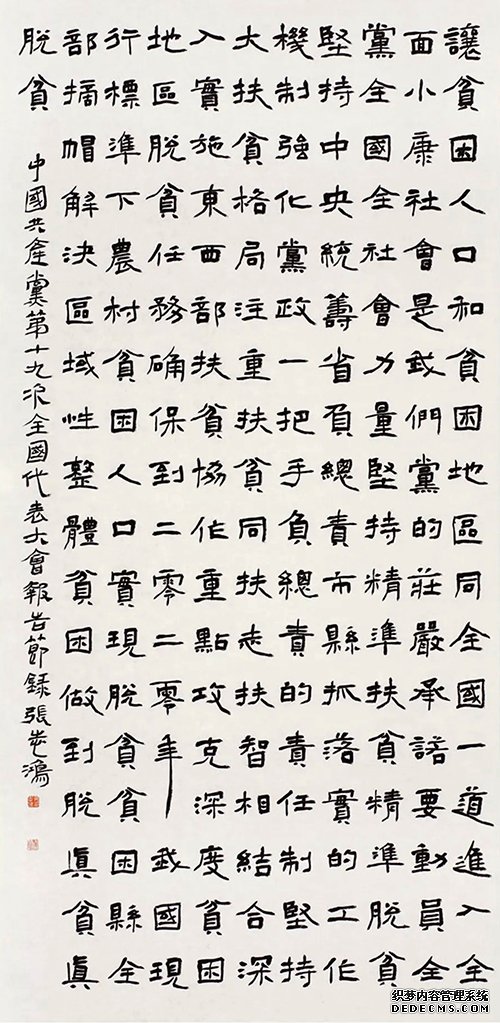 讓貧困人口和貧困地區同全國一道進入全
面小康社會是我們黨的莊嚴承諾要動員全
黨全國全社會力量堅持精準扶貧精準脫貧
堅持中央統籌省負總責市縣抓落實的工作
機制強化黨政一把手負總責的責任制堅持
大扶貧格局注重扶貧同扶志扶智相結合深
入實施東西部扶貧協作重點攻克深度貧困
地區脫貧任務確保到二零二零年我國現
行標準下農村貧困人口實現脫貧貧困縣全
部摘帽解決區域性整體貧困做到脫眞貧眞
脫貧
中國共產黨第十九次全國代表大會報告節錄張志鴻
织梦内容管理系统
DEDECMS.COM